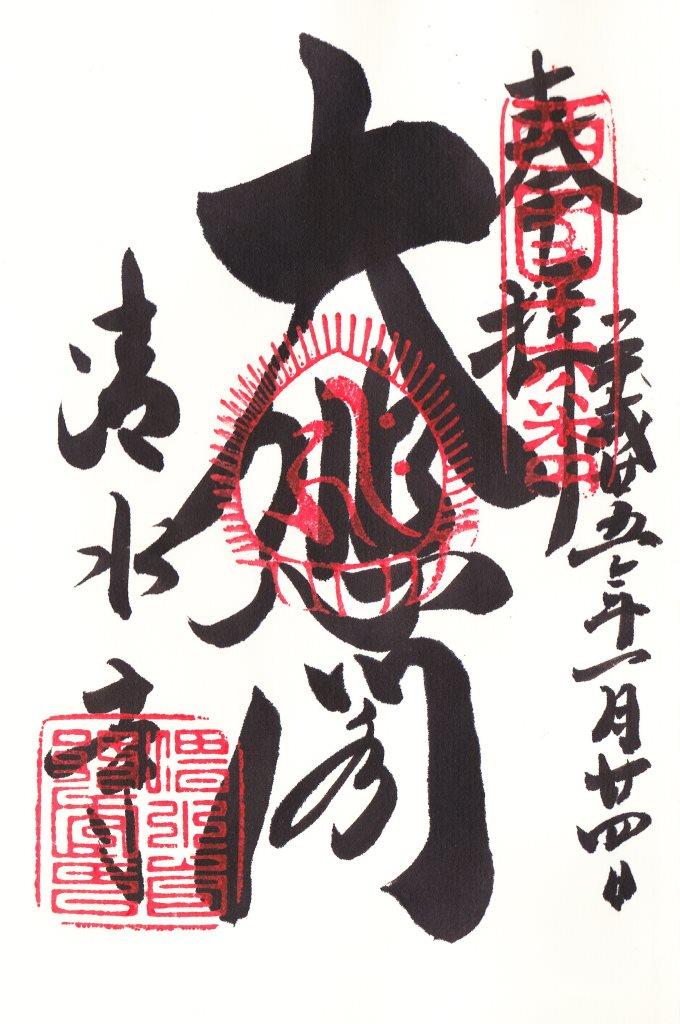 奉拝
西国十六番
平成廿五年一月廿四日
大悲閣
清水寺